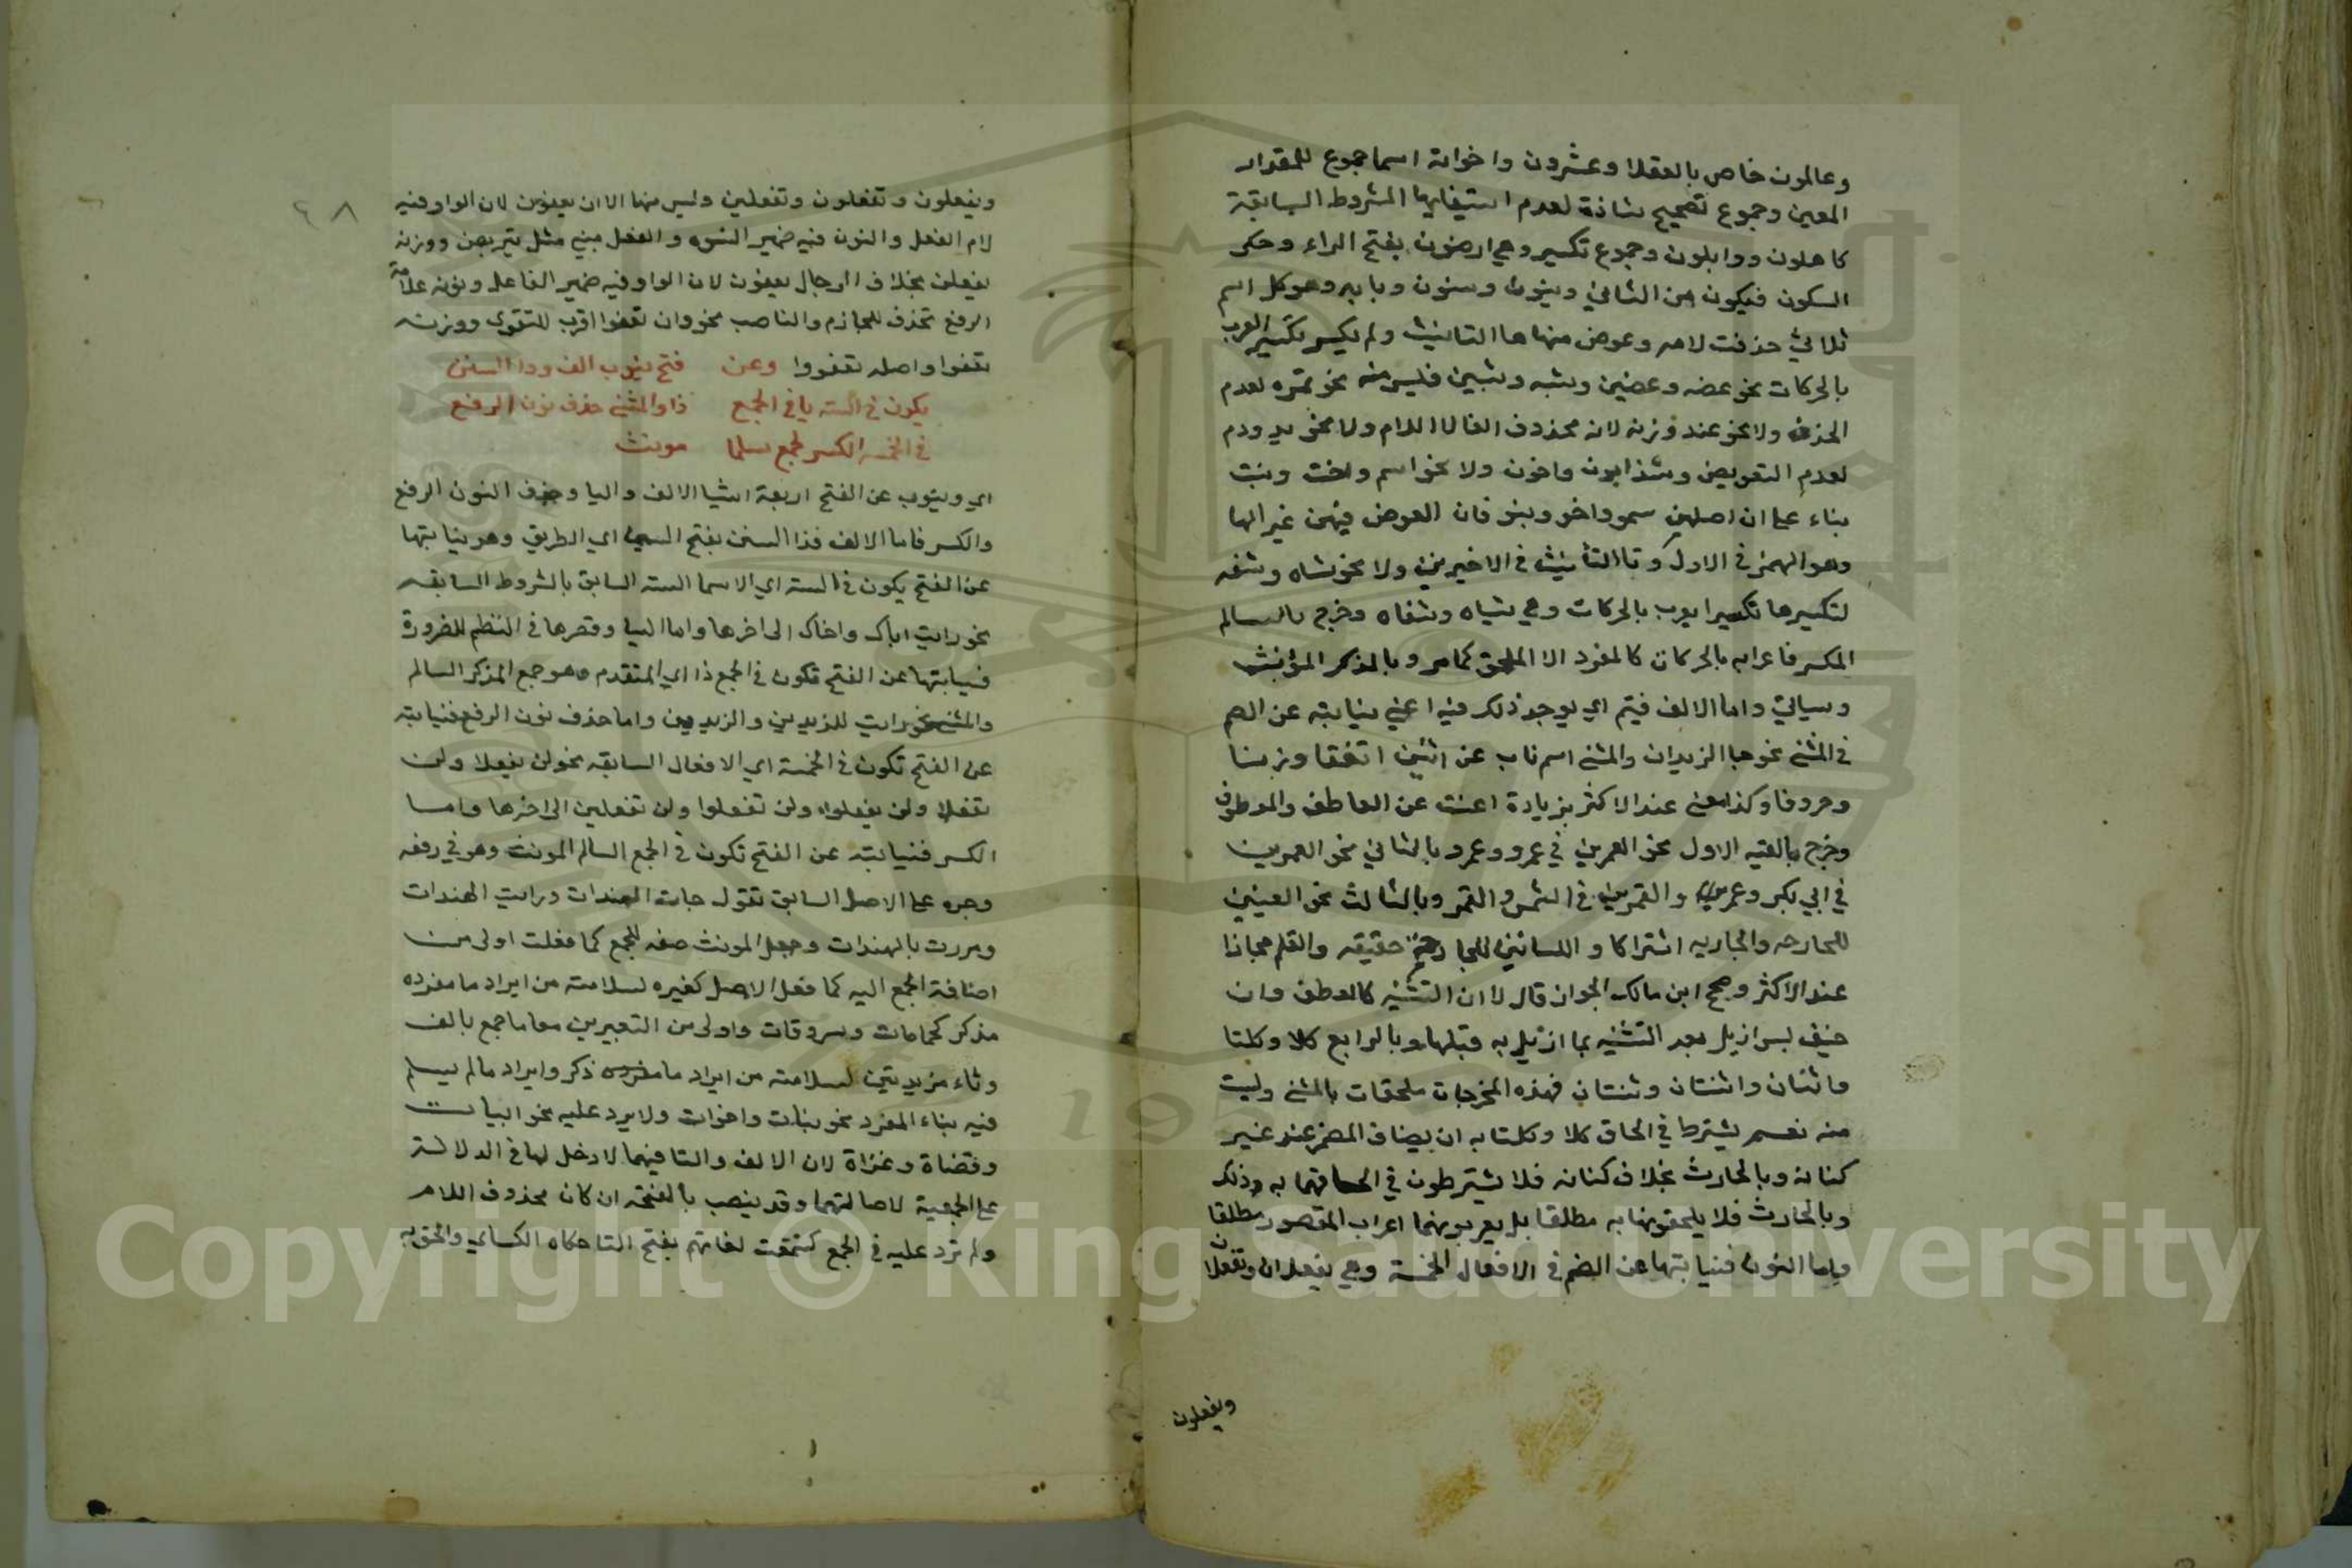 وعالمون خاص بالعقلا وعشرون واخواته اسما جموع للمقدار
المعين وجموع تصحيح شاذة لعدم استيفايها الشروط السابقة
كاهلون ووابلون وجموع تكسير وهي ارضون بفتح الراء وحكى
السكون فيكون من الثاني وبنون وسنون وبابه وهو كل اسم
ثلاثي حذفت لامه وعوض منها ها التانيث ولم يكسر تكسير العرب
بالحركات نحو عضه وعضين وثبه وثبين فليس منه نحو تمره لعدم
الحذف ولا نحو عده وزنه لانه محذوف الفا لا اللام ولا نحو يد ودم
لعدم التعويض وشذ ابون واخون ولا نحو اسم واخت وبنت
بناء على ان اصلهن سمو واخو وبنو فان العوض فيهن غير الها
وهو الهمز في الاول وتا التأنيث في الاخيرين ولا نحو شاه وشفه
لتكسيرها تكسيرا يعرب بالحركات وهي شياه وشفاه وخرج بالسالم
المكسر فاعرابه بالحركات كالمفرد الا الملحق كما مر وبالمذكر المؤنث
وسياتي واما الالف فيتم اي يوجد ذلك فيه اعني نيابته عن الضم
في المثنى نحو هما الزيدان والمثنى اسم ناب عن اثنين اتفقا وزنا
وحروفا وكذا معنى عند الاكثر بزيادة اغنت عن العاطف والمعطوف
وخرج بالقيد الاول نحو العمرين في عمرو وعمر وبالثاني نحو العمرين
في ابي بكر وعمر والقمرين في الشمس والقمر وبالثالث نحو العينين
للجارحه والجاريه اشتراكا و اللسانين للجارحة حقيقه والقلم مجازا
عند الاكثر وصحح ابن مالك الجواز قال لا ان التثنيه كالعطف وان
حنيف لبس ازيل بعد التثنيه بما ازيل به قبلها وبالرابع كلا وكلتا
واثنان واثنتان وثنتان فهذه المخرجات ملحقات بالمثنى وليست
منه نعم يشترط في الحاق كلا وكلتا به ان يضاف المضمر عند غير
كنانة وبالحارث بخلاف كنانه فلا يشترطون في الحاقهما به وذلك
وبالحارث فلا يلحقونها به مطلقا بل يعربونهما اعراب المقصور مطلقا
واما النون فنيابتها عن الضم في الافعال الخمسة وهي يفعلان وتفعلان
ويفعلون
٢٨
ويفعلون وتفعلون وتفعلين وليس منها الا ان يعفون لان الواو فيه
لام الفعل والنون فيه ضمير النسوه والفعل مبني مثل يتربصن ووزنه
يفعلن بخلاف الرجال يعفون لان الواو فيه ضمير الفاعل ونونه علامة
الرفع تحذف للجازم والناصب نحو وان تعفوا اقرب للتقوى ووزنه
تفعوا واصله تعفووا وعن فتح ينوب الف وذا السنن
يكون في السته يا في الجمع ذا والمثنى حذف نون الرفع
في الخمسه الكسر لجمع سلما مونث
اي وينوب عن الفتح اربعة اشيا الالف واليا وحذف النون الرفع
والكسر فاما الالف فذا السنن بفتح السين اي الطريق وهو نيابتها
عن الفتح يكون في السته اي الاسما السته السابق بالشروط السابقه
نحو رايت اباك واخاك الى اخرها واما اليا وقصرها في النظم للضرورة
فنيابتها عن الفتح تكون في الجمع ذا اي المتقدم وهو جمع المذكر السالم
والمثنى نحو رايت للزيدين والزيدين واما حذف نون الرفع فنيابته
عن الفتح تكون في الخمسة اي الافعال السابقه نحو لن يفعلا ولن
تفعلا ولن يفعلوا ولن تفعلوا ولن تفعلين الى اخرها واما
الكسر فنيابته عن الفتح تكون في الجمع السالم المونث وهو في رفعه
وجره على الاصل السابق تقول جات الهندات ورايت الهندات
ومررت بالهندات وجعل المونث صفه للجمع كما فعلت اولى من
اضافة الجمع اليه كما فعل الاصل كغيره لسلامته من ايراد ما مفرده
مذكر كحمامات وسروقات واولى من التعبيرين معا ما جمع بالف
وتاء مزيدتين لسلامته من ايراد ما مفرده ذكر وايراد مالم يسلم
فيه بناء المفرد نحو بنات واخوات ولا يرد عليه نحو ابيات
وقضاة وغزاة لان الالف والتا فيهما لا دخل لها في الدلالة
على الجمعية لاصالتهما وقد ينصب بالفتحه ان كان محذوف اللام
ولم ترد عليه في الجمع كسمعت لغاتهم بفتح التا حكاه الكساي والحق به
Copyright © King Saud University